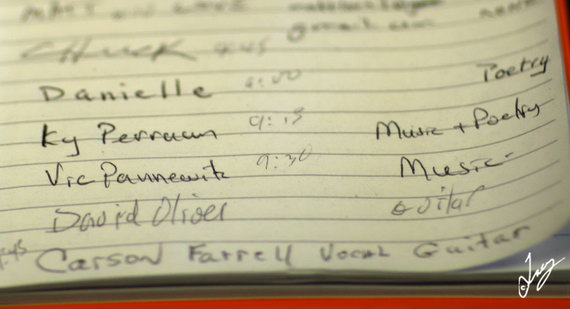 CHUCK 8:45
gmail.com
Danielle 9:00 Poetry
Ky Perraun 9:15 Music + Poetry
Vic Pannewitz 9:30 Music
David Oliver Guitar
Carson Farrell Vocal Guitar